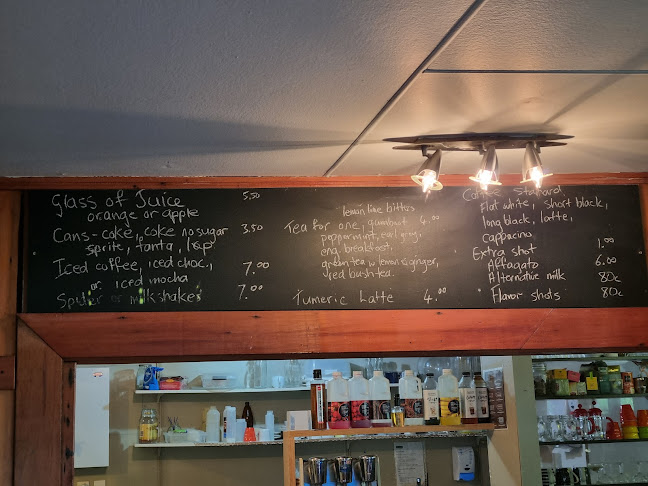 Glass of Juice 5.50
orange or apple
Cans-cake, coke no sugar 3.50
sprite, fanta, L&P
Iced coffee, iced choc., 7.00
or iced mocha
Spider or milkshakes 7.00
lemon lime bitters
Tea for one, gumboot 4.00
peppermint, earl grey,
eng. breakfast,
green tea w lemon & ginger,
red bush-tea.
Tumeric Latte 4.00
Coffee standard
flat white, short black,
long black, latte,
cappacino
Extra shot 1.00
Affagato 6.00
Alternative milk 80c
Flavor shots 80c